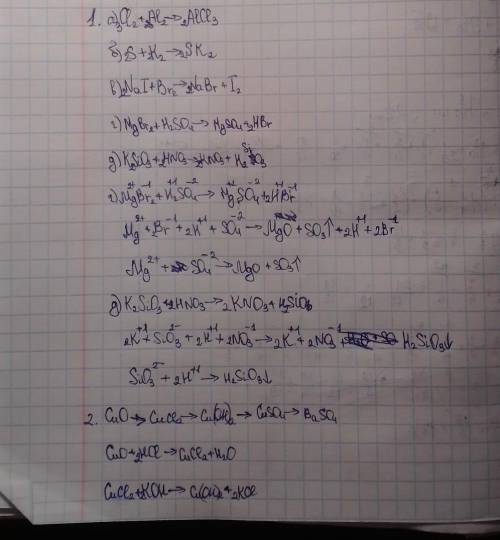 1. а) 3Cl₂ + 2Al₂ → 2AlCl₃
б) 2S + K₂ → 2SK₂
в) 2NaI + Br₂ → 2NaBr + I₂
г) MgBr₂ + H₂SO₄ → MgSO₄ + 2HBr
д) K₂SiO₃ + 2HNO₃ → 2KNO₃ + H₂SiO₃
г) Mg²⁺Br₂⁻¹ + H₂⁺¹SO₄⁻² → Mg⁺²SO₄⁻² + 2H⁺¹Br⁻¹
Mg²⁺ + Br⁻¹ + 2H⁺¹ + SO₄⁻² → MgO + SO₃↑ + 2H⁺¹ + 2Br⁻¹
Mg²⁺ + SO₄⁻² → MgO + SO₃↑
д) K₂SiO₃ + 2HNO₃ → 2KNO₃ + H₂SiO₃
2K⁺¹ + SiO₃²⁻ + 2H⁺¹ + 2NO₃⁻¹ → 2K⁺¹ + 2NO₃⁻¹ + H₂SiO₃↓
SiO₃²⁻ + 2H⁺¹ → H₂SiO₃↓
2. CuO → CuCl₂ → Cu(OH)₂ → CuSO₄ → BaSO₄
CuO + 2HCl → CuCl₂ + H₂O
CuCl₂ + 2KOH → Cu(OH)₂ + 2KCl